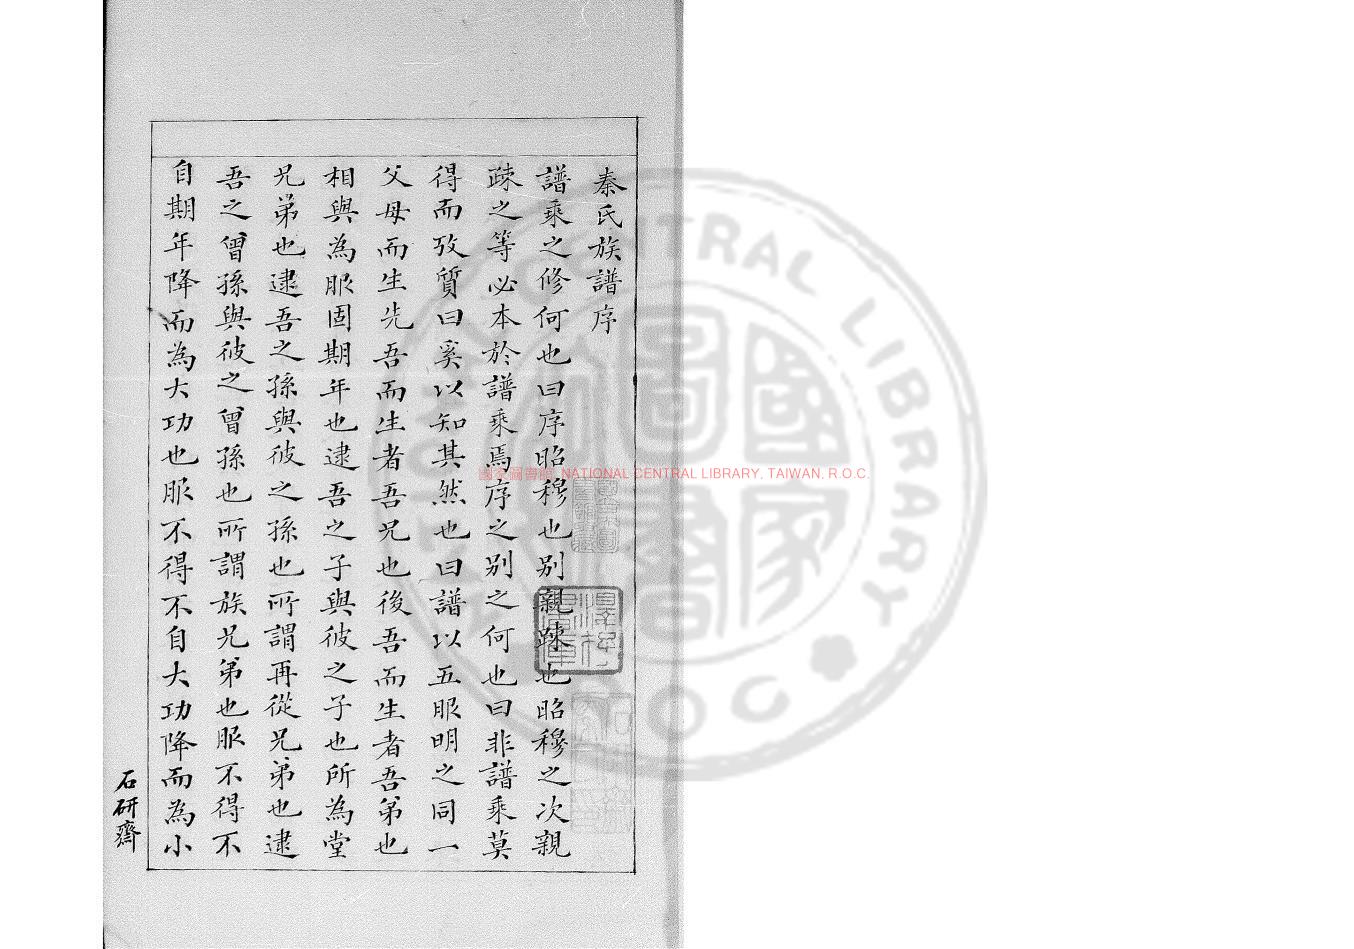 秦氏族譜序
譜乘之修何也曰序昭穆也別親踈也昭穆之次親
踈之等必本於譜乘焉序之別之何也曰非譜乘莫
得而攷質曰奚以知其然也曰譜以五服明之同一
父母而生先吾而生者吾兄也後吾而生者吾弟也
相與為服固期年也逮吾之子與彼之子也所為堂
兄弟也逮吾之孫與彼之孫也所謂再從兄弟也逮
吾之曾孫與彼之曾孫也所謂族兄弟也服不得不
自期年降而為大功也服不得不自大功降而為小
石研齋
國家圖書館 NATIONAL CENTRAL LIBRARY, TAIWAN, R.O.C.